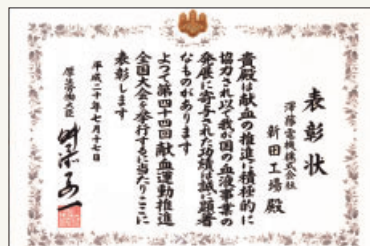 表彰状
澤藤電機株式会社
新田工場殿
貴殿は献血の推進に積極的に
協力され以て我が国の血液事業の
発展に寄与された功績は誠に顕著
なものがあります
よつて第四十四回献血運動推進
全国大会を挙行するに当たりここに
表彰します
平成二十年七月十七日
厚生労働大臣